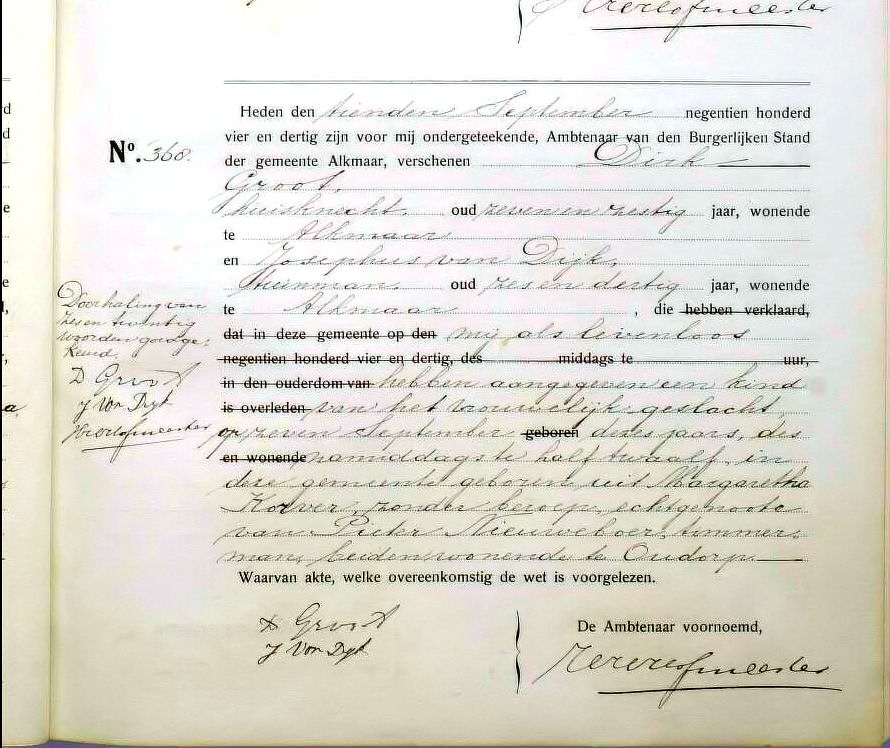 Heden den tienden September negentien honderd
vier en dertig zijn voor mij ondergeteekende, Ambtenaar van den Burgerlijken Stand
No. 368. der gemeente Alkmaar, verschenen Dirk
Groot,
huisknecht, oud zeven en zestig jaar, wonende
te Alkmaar
en Josephus van Dijk,
tuinman, oud zes en dertig jaar, wonende
te Alkmaar, die hebben verklaard,
dat in deze gemeente op den mij als levenloos
negentien honderd vier en dertig, des middags te uur,
in den ouderdom van hebben aangegeven een kind
is overleden van het vrouwelijk geslacht,
op zeven September geboren dezes jaars, des
en wonende namiddags te half twaalf, in
deze gemeente geboren uit Margaretha
Korver, zonder beroep, echtgenoote
van Pieter Nieuweboer, timmer-
man, beiden wonende te Oudorp
Waarvan akte, welke overeenkomstig de wet is voorgelezen.
Doorhaling van
zes en twintig
woorden goedge-
keurd.
D Groot
J Van Dyk
D Groot
J Van Dyk
De Ambtenaar voornoemd,